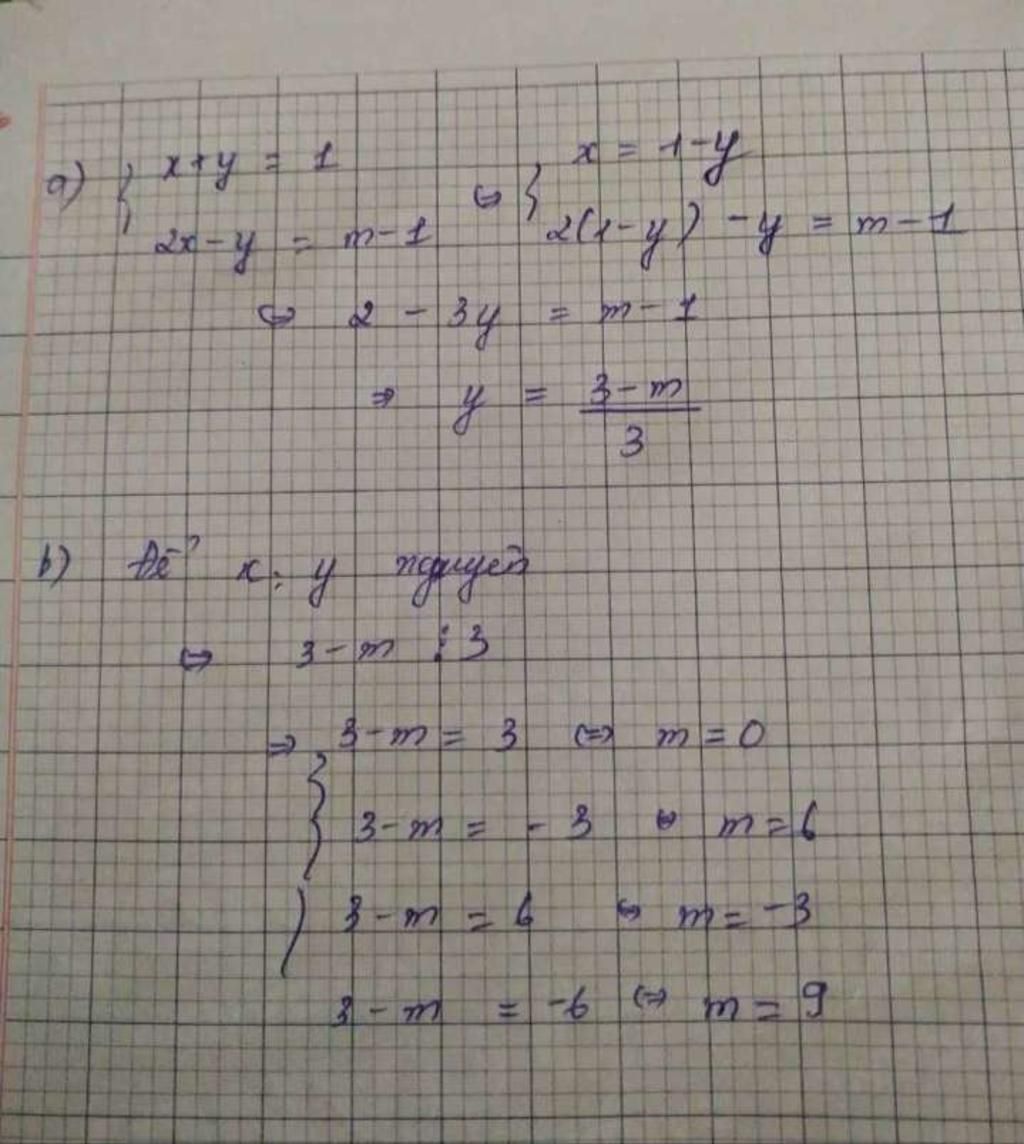 a) { x+y = 1 ⇔ { x = 1-y
2x-y = m-1 2(1-y) -y = m-1
⇔ 2 - 3y = m-1
⇒ y = 3-m / 3
b) Để x; y nguyên
⇔ 3-m ⋮ 3
⇒ 3-m = 3 ⇔ m = 0
3-m = -3 ⇔ m = 6
3-m = 6 ⇔ m = -3
3-m = -6 ⇔ m = 9